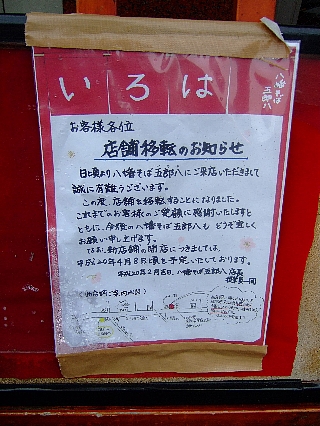 いろは
八幡そば
五郎八
お客様各位
店舗移転のお知らせ
日頃より八幡そば五郎八にご来店いただきまして
誠に有難うございます。
この度、店舗を移転することになりました。
これまでのお客様のご愛顧に感謝いたしますと
ともに、今後の八幡そば五郎八も どうぞ宜しく
お願い申し上げます。
なお、新店舗の開店につきましては、
平成20年4月8日頃を予定いたしております。
平成20年2月吉日 八幡そば五郎八 店長
従業員一同